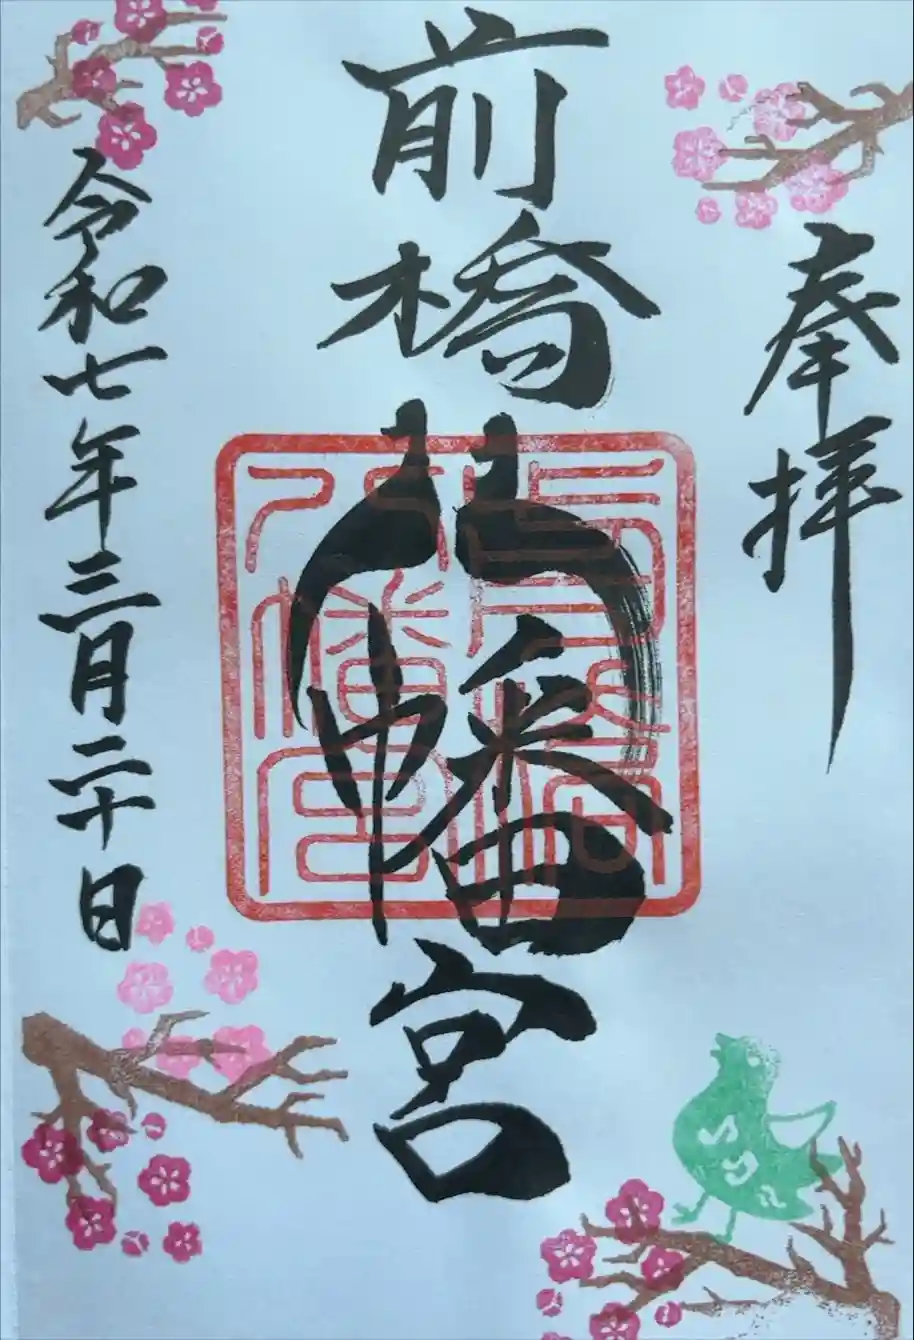 奉拝
前橋八幡宮
令和七年三月二十日
前橋八幡宮